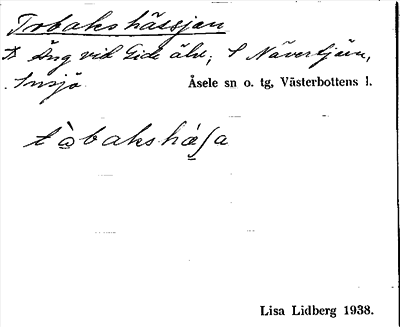 Tobakshässjan
Äng vid Gide älv, S Nävertjärn,
Insjö
Åsele sn o. tg, Västerbottens l.
tòbakshæ̀ʃa
Lisa Lidberg 1938.